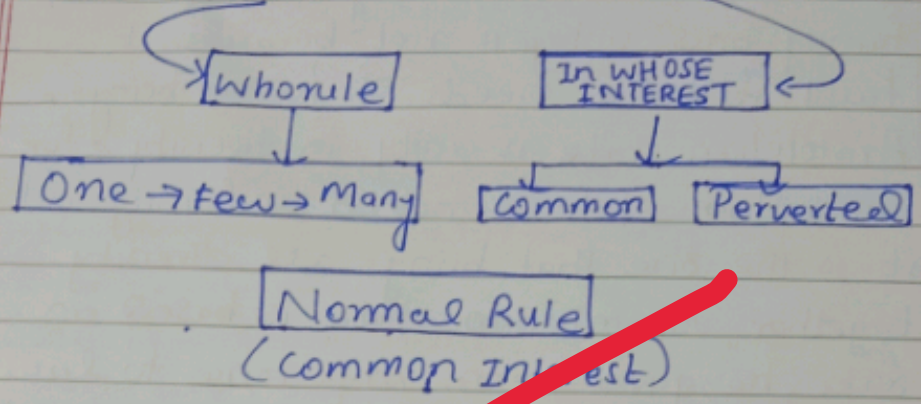 Whorule
In WHOSE
INTEREST
One → Few → Many
Common
Perverted
Normal Rule
(Common